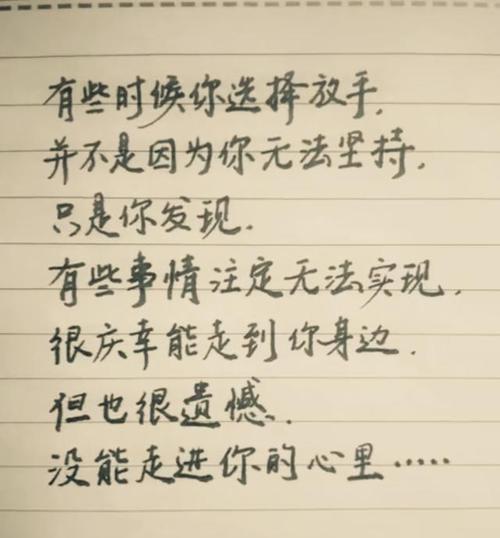 有些时候你选择放手,
并不是因为你无法坚持,
只是你发现.
有些事情注定无法实现,
很庆幸能走到你身边.
但也很遗憾.
没能走进你的心里······